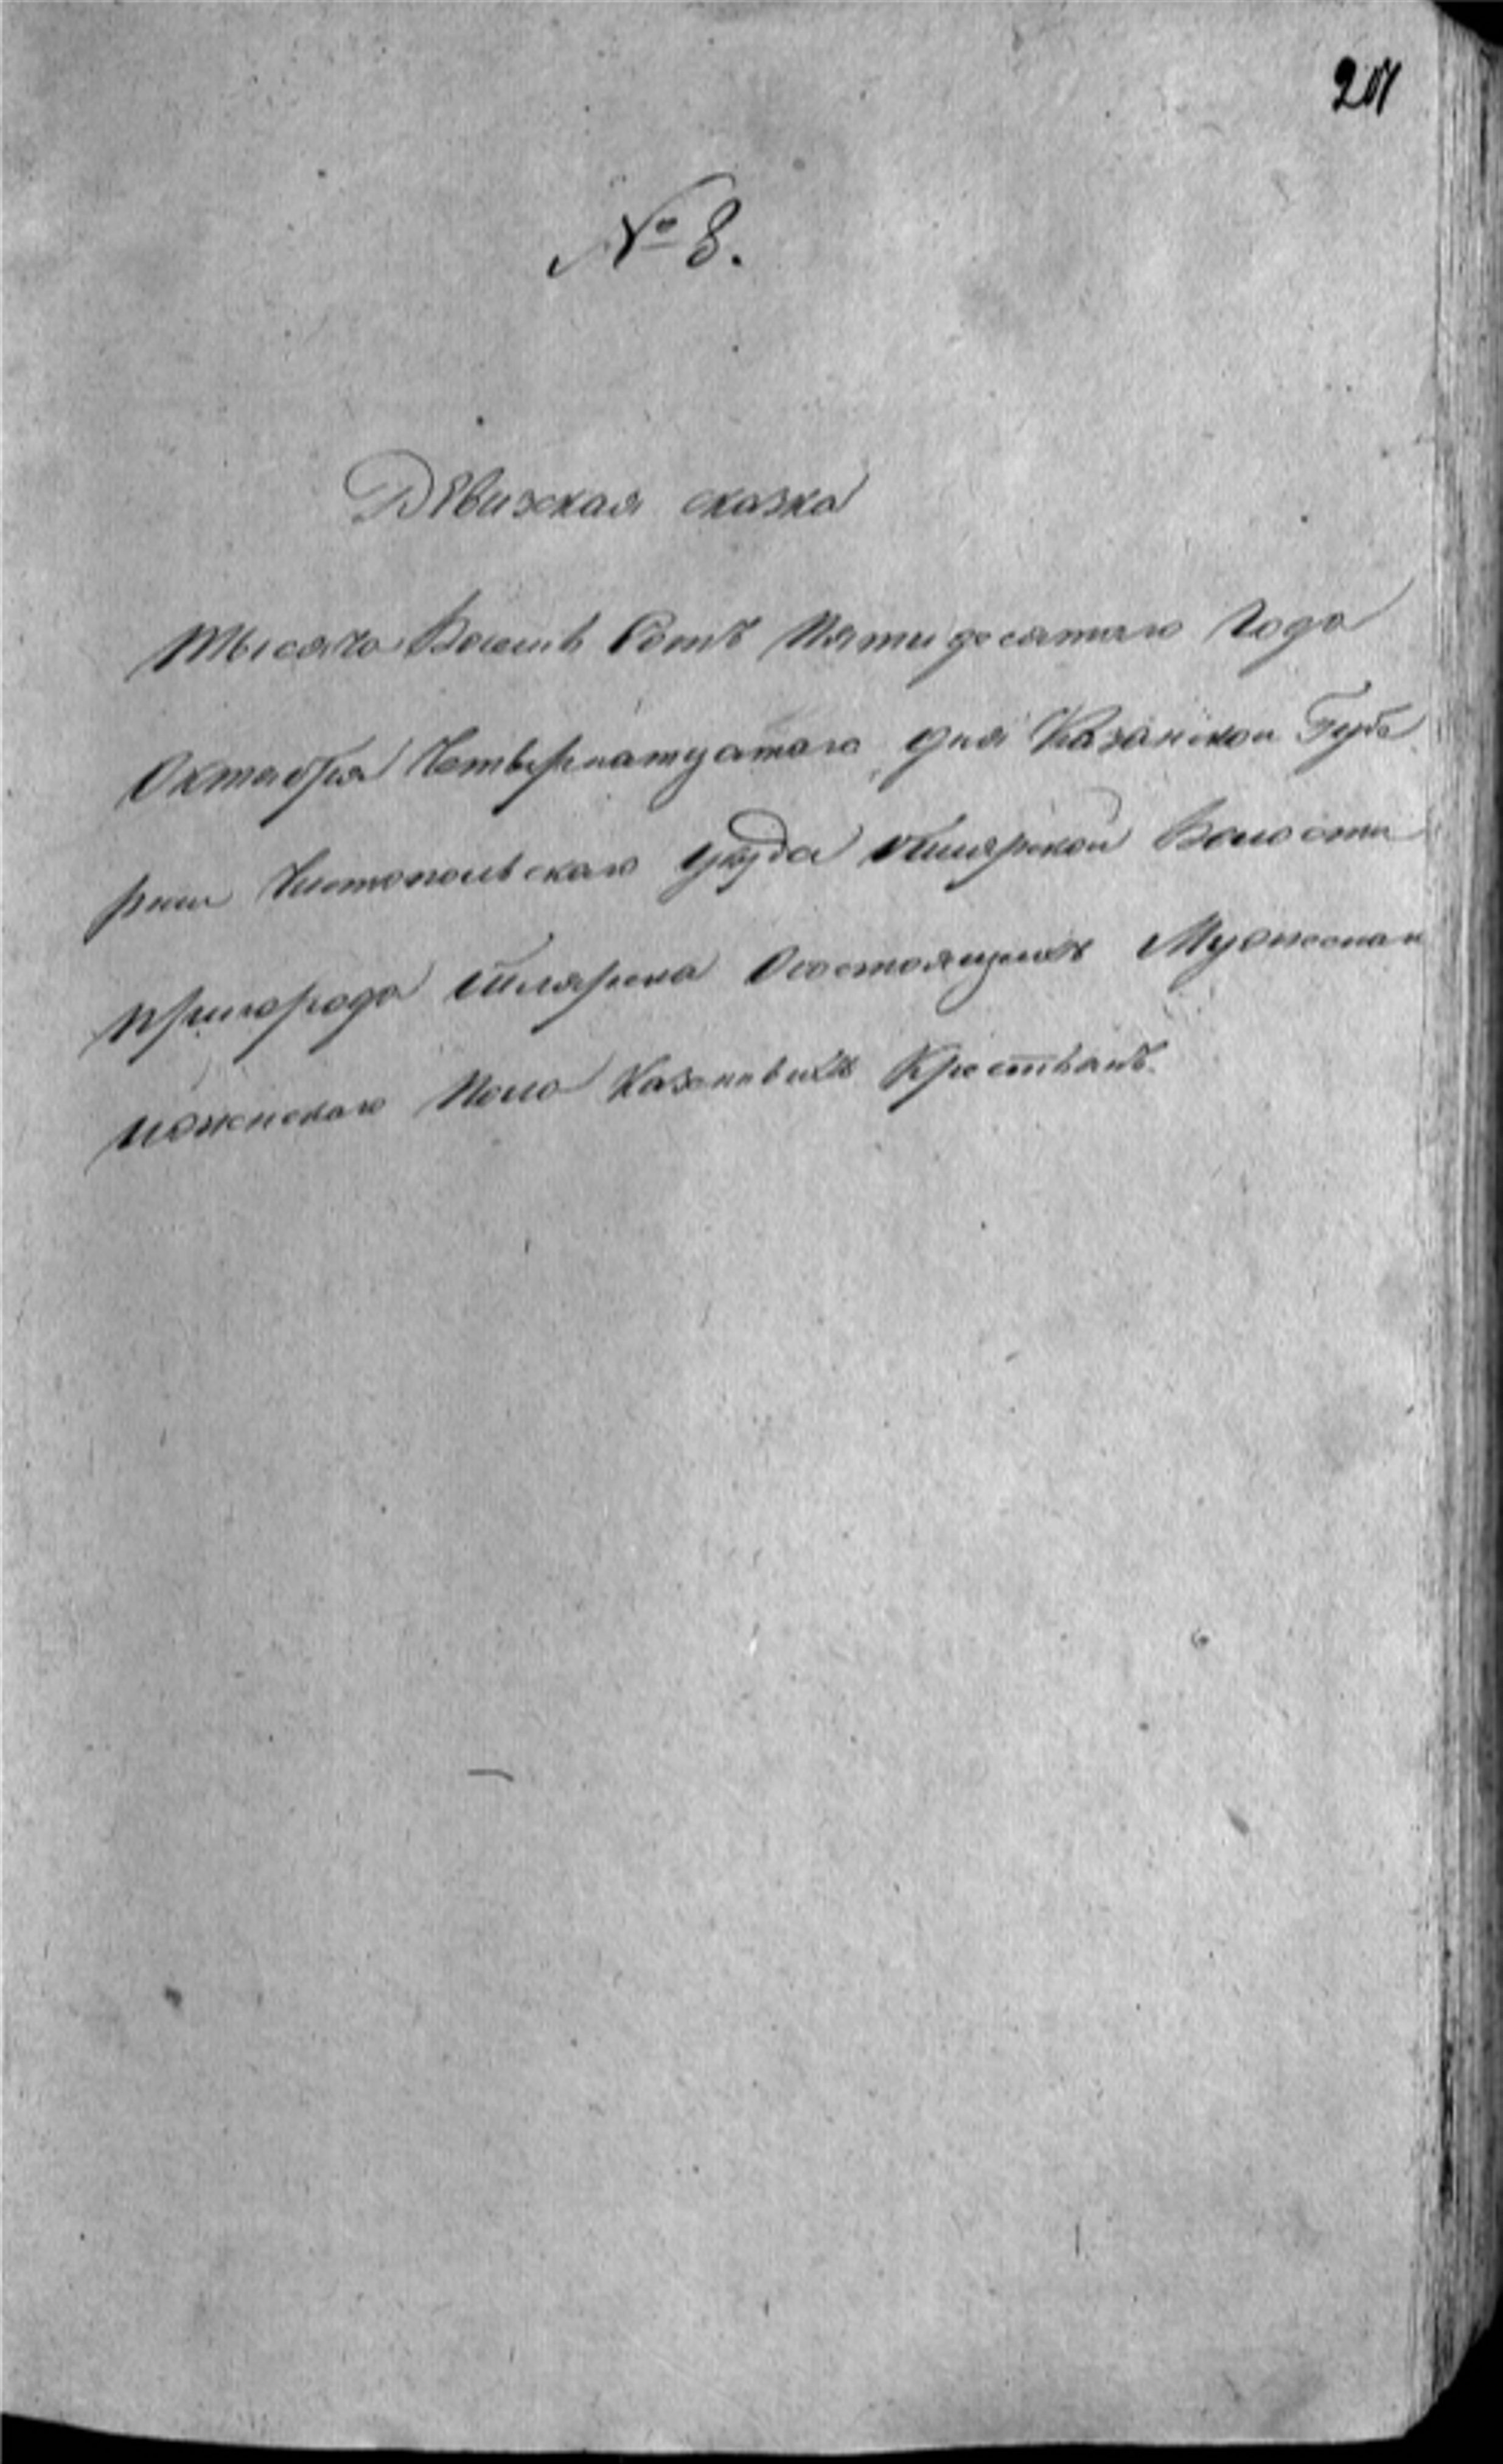 201
№ 8.
Ревизская сказка
Тысяча Восемь Сотъ Пятидесятаго Года
Октября Четвернатцатаго дня Казанской Губе
рніи Чистопольскаго уѣзда Билярской Волости
пригорода Билярска Осостоящихъ Мужескаи
иженскаго Пола Казенныхъ Крестьянъ.